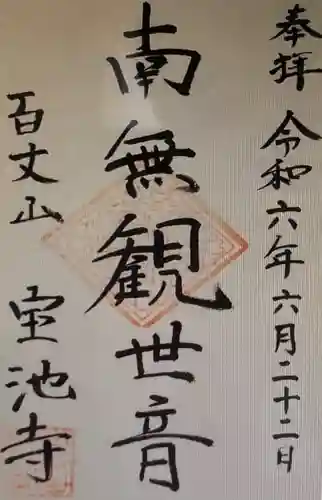 奉拝 令和六年六月二十二日
南無観世音
百丈山 宝池寺